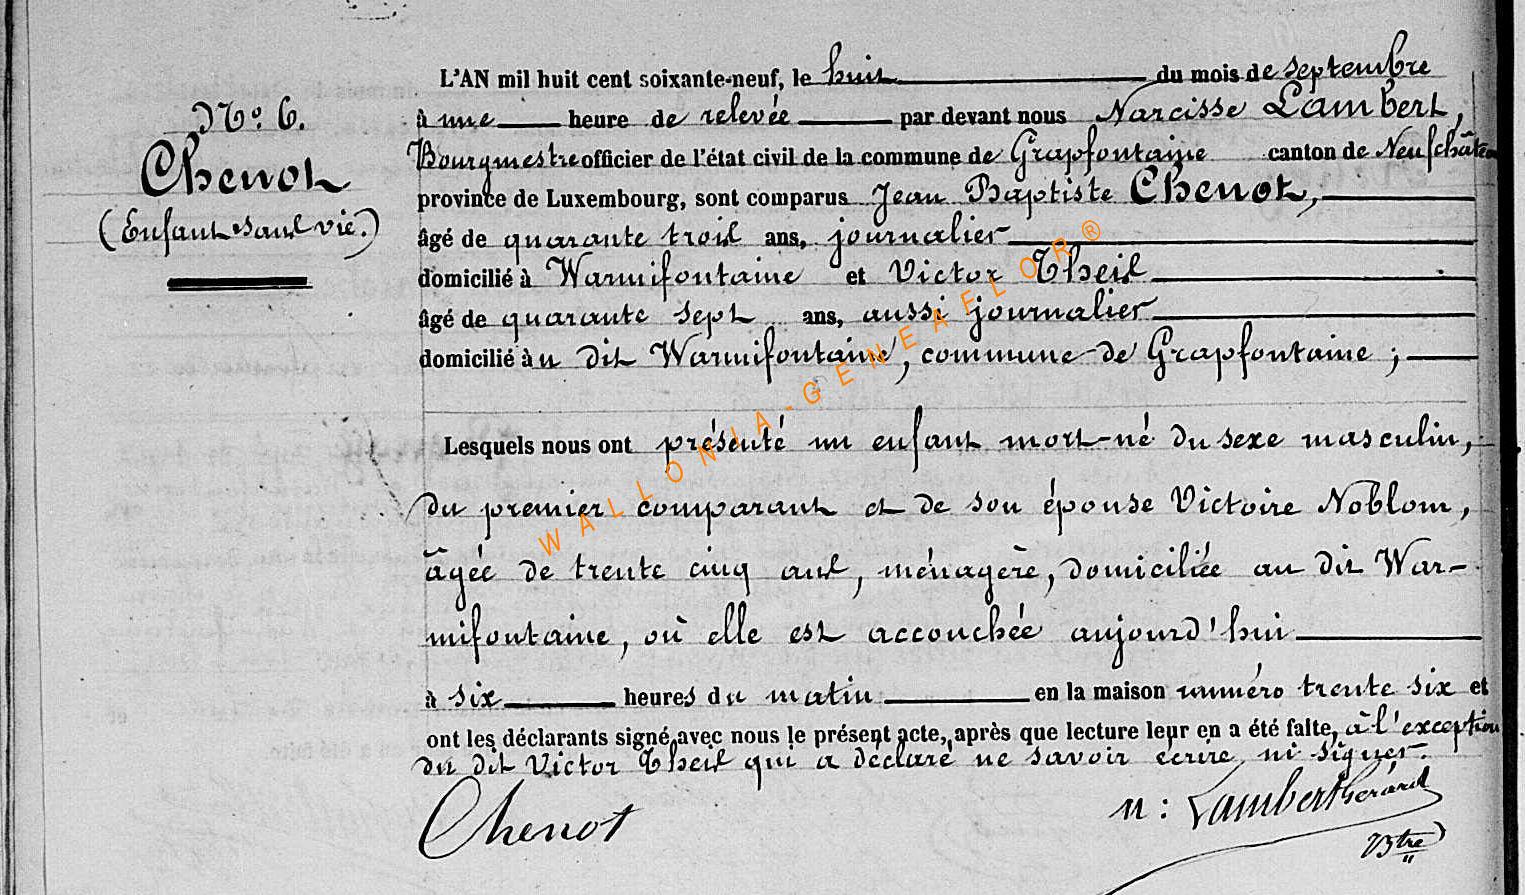 N.° 6.
Chenot
(Enfant sans vie.)
L'AN mil huit cent soixante-neuf, le huit du mois de septembre
à une heure de relevée par devant nous Narcisse Lambert,
Bourgmestre officier de l'état civil de la commune de Grapfontaine canton de Neufchâteau
province de Luxembourg, sont comparus Jean Baptiste Chenot,
âgé de quarante trois ans, journalier
domicilié à Warmifontaine et Victor Theis
âgé de quarante sept ans, aussi journalier
domicilié àu dit Warmifontaine, commune de Grapfontaine ;
Lesquels nous ont présenté un enfant mort-né du sexe masculin,
du premier comparant et de son épouse Victoire Noblom,
âgée de trente cinq ans, ménagère, domiciliée au dit War-
mifontaine, où elle est accouchée aujourd'hui
à six heures du matin en la maison numéro trente six et
ont les déclarants signé avec nous le présent acte, après que lecture leur en a été faite, à l'exception
du dit Victor Theis qui a déclaré ne savoir écrire, ni signer.
Chenot
N : Lambert Gérard
Btre
WALLONIA-GENEAELOR®